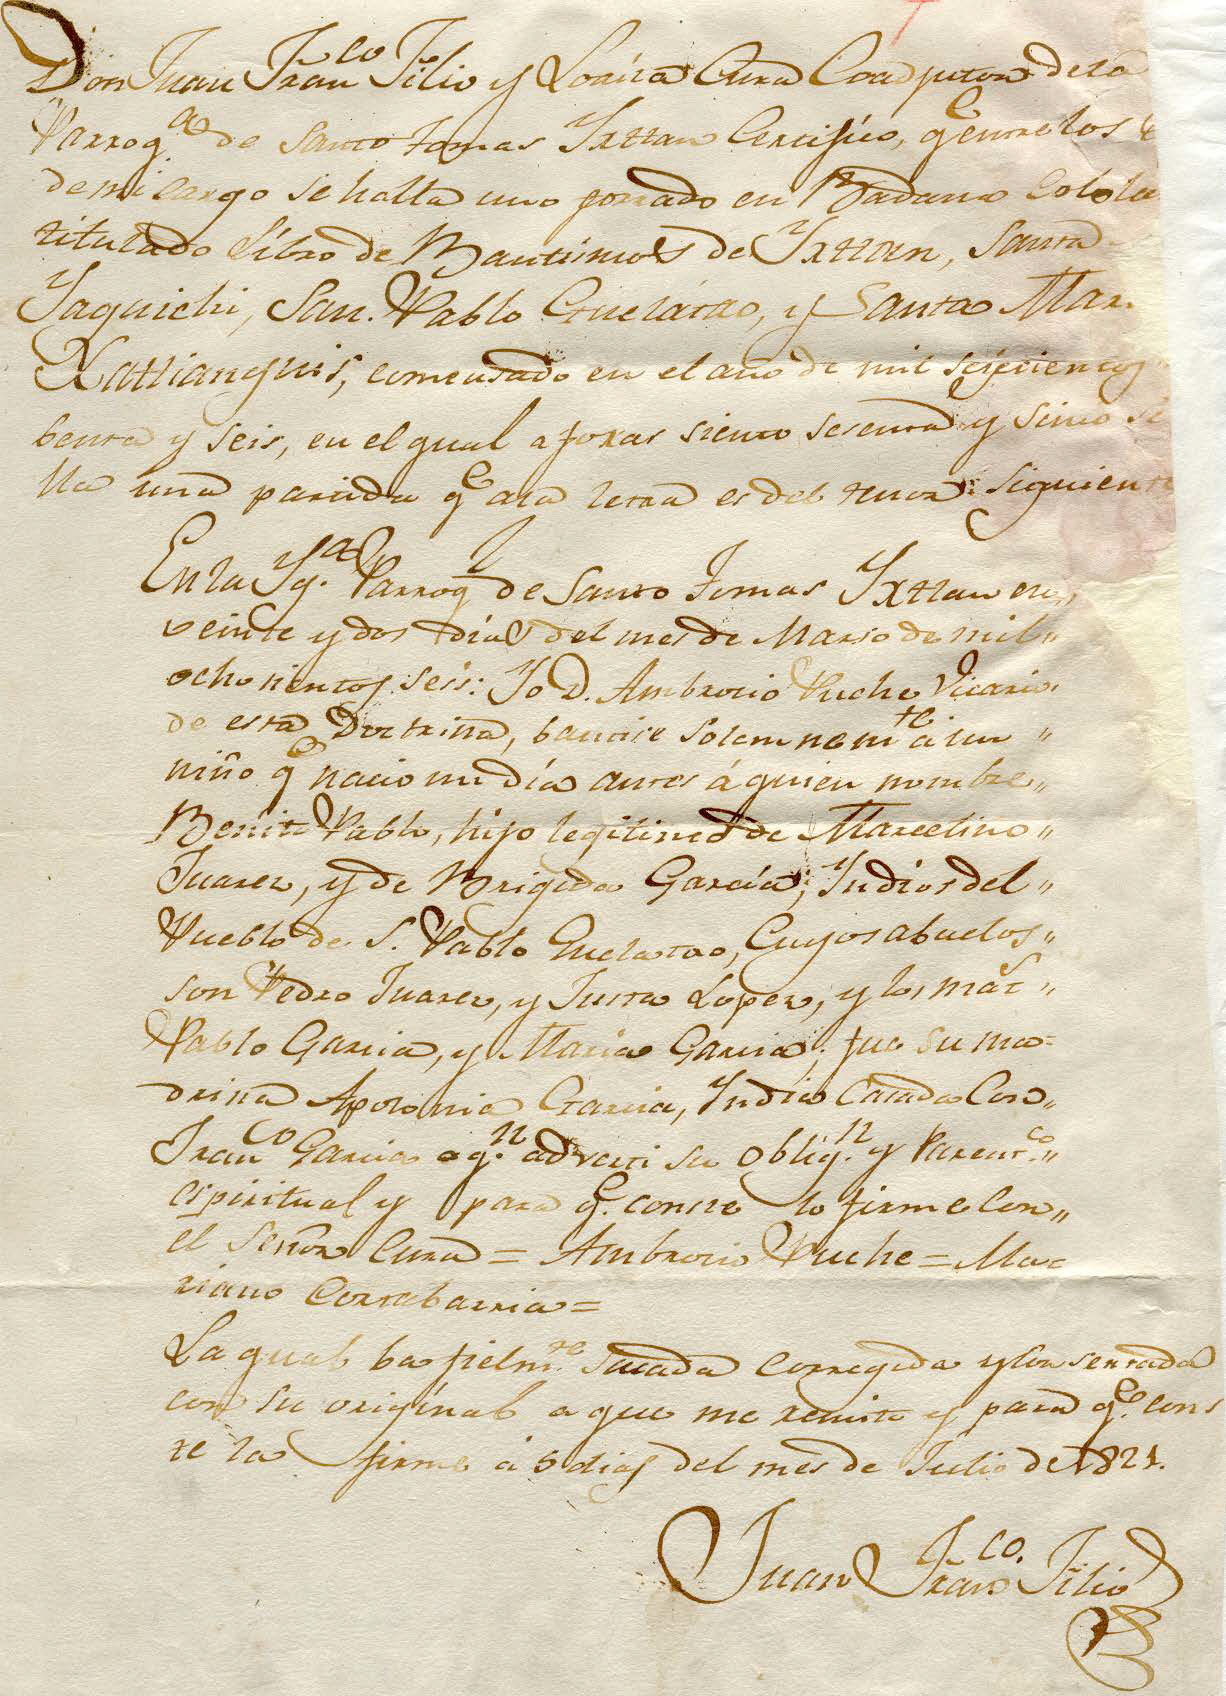 Don Juan Fran.co Filio y Loaiza Cura Coadjutor de la
Parroq.a de Santo tomas Yxtlan Certifico, q.e entre los
de mi cargo se halla uno forrado en Badana Colo
titulado Libro de Bautismos de Yxtlan, Santa
Yaguichi, San. Pablo Guelatao, y Santa Mar.
Xatlianguis, comensado en el año de mil seiscientos
benta y seis, en el qual a foxas siento sesenta y sinco se
lla una partida q.e a la letra es del tenor siguiente
En la Yg.a Parroq de Santo Tomas Yxtlan en
veinte y dos días del mes de Marso de mil "
ochosientos seis: Yo D. Ambrocio Puche Vicario
de esta Doctrina, bautise solemnem.te á un "
niño q.e nacio un día antes á quien nombre "
Benito Pablo, hijo legitimo de Marcelino "
Juarez, y de Brigida García; Yndios del "
Pueblo de S. Pablo Guelatao, Cuyos abuelos "
son Pedro Juarez, y Justa Lopez, y los mat.s "
Pablo Garcia, y Maria Garcia; fue su ma=
drina Apolonia Garcia, Yndia Casada Con "
Fran.co Garcia a q.n adverti su oblig.n y Parent.co "
espiritual y para q.e conste lo firme con "
el Señor Cura = Ambrocio Puche = Ma=
riano Cortabarria =
La qual ba fielm.te sacada corregida y consertada
con su original a que me remito y para q.e cons
te la firme á 5 dias del mes de Julio de 1821.
Juan Fran.co Filio